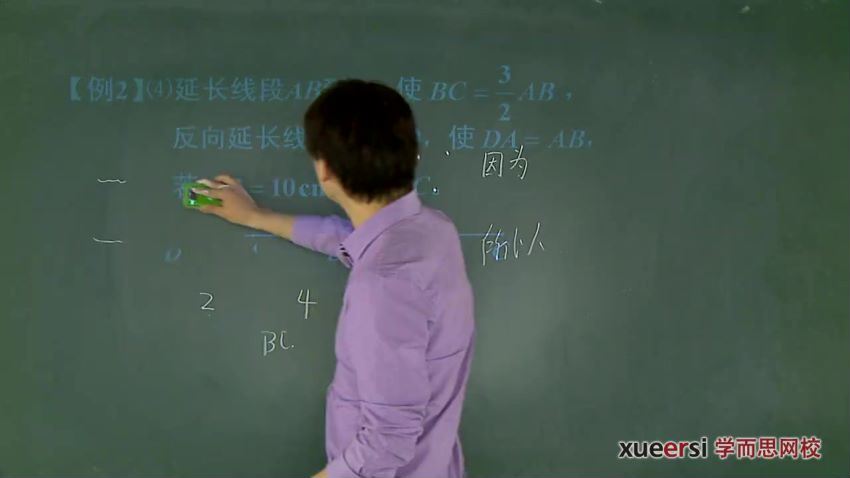 【例2】(4)延长线段AB 使 BC = 3/2 AB，
反向延长线 ，使 DA = AB，
= 10 cm C.
因为
所以
D
2 4
BC
xueersi 学而思网校